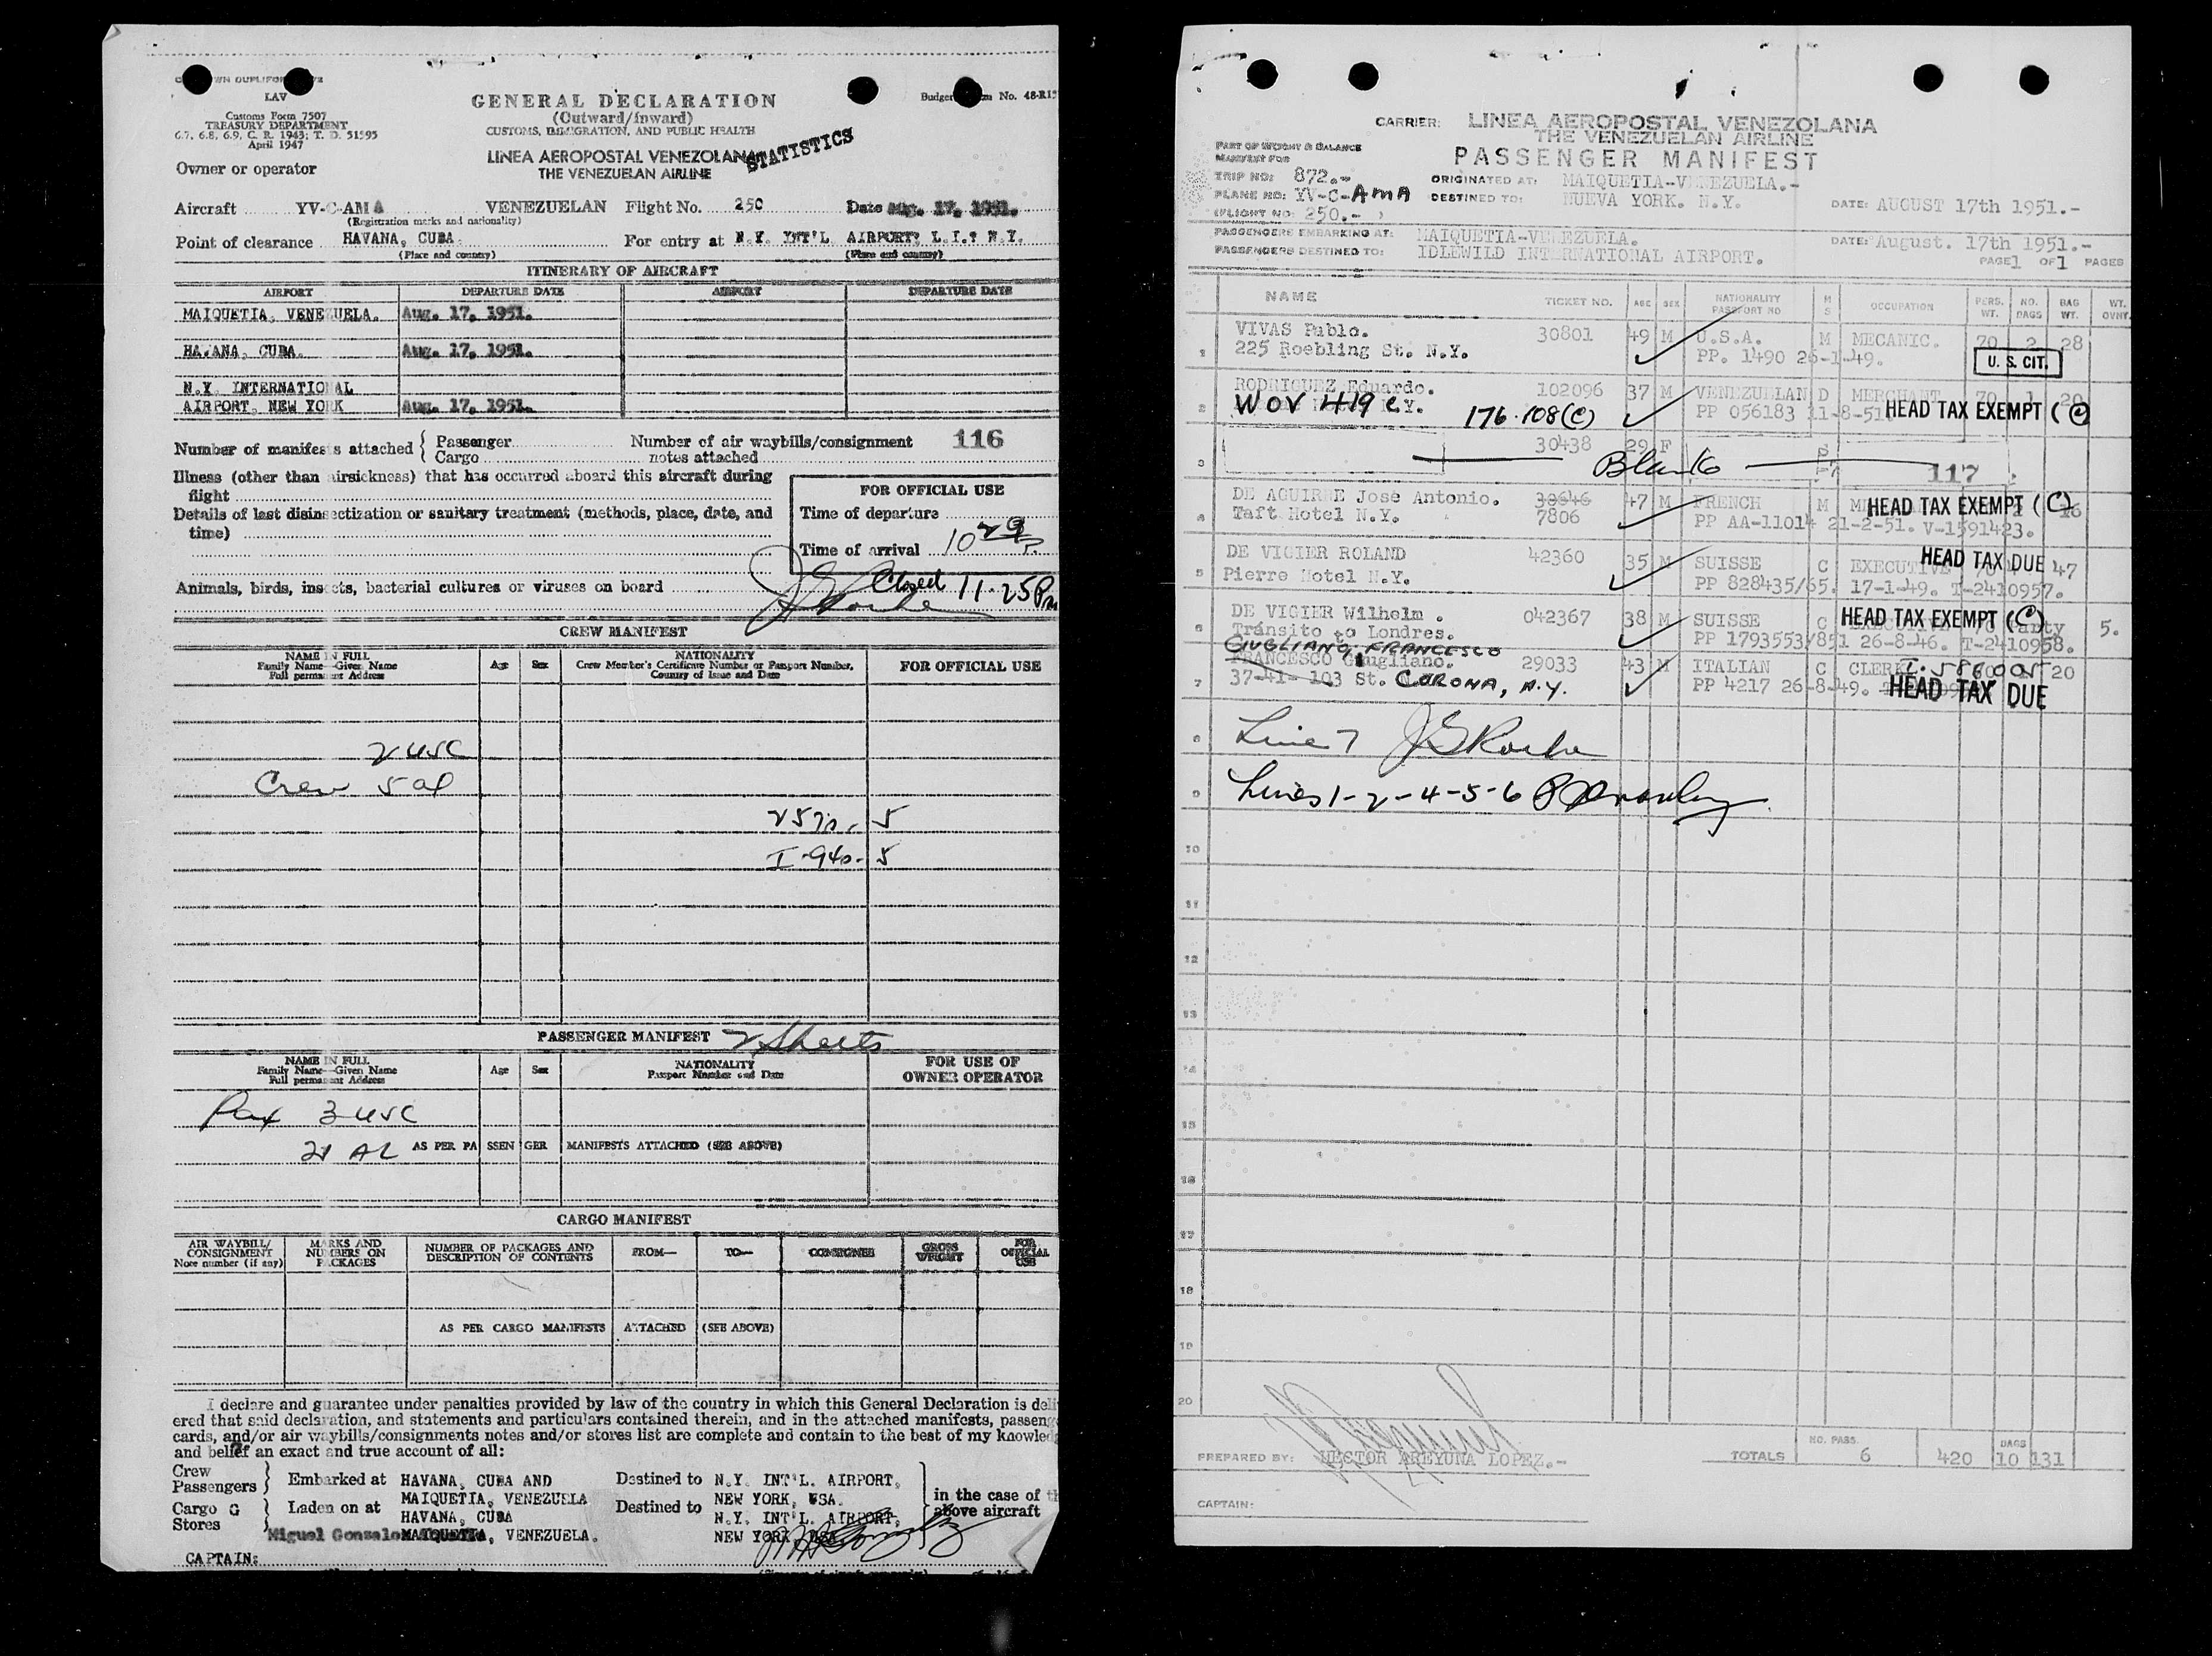 LAV
Customs Form 7507
TREASURY DEPARTMENT
6.7, 6.8, 6.9, C. R. 1943; T. D. 51595
April 1947
GENERAL DECLARATION
(Outward/Inward)
CUSTOMS, IMMIGRATION, AND PUBLIC HEALTH
LINEA AEROPOSTAL VENEZOLANA
THE VENEZUELAN AIRLINE
STATISTICS
No. 48-R1
Owner or operator
Aircraft YV-C-AMA VENEZUELAN Flight No. 250 Date Aug. 17, 1951.
(Registration marks and nationality)
Point of clearance HAVANA, CUBA. For entry at N.Y. INT'L AIRPORT, L.I., N.Y.
(Place and country) (Place and country)
ITINERARY OF AIRCRAFT
AIRPORT DEPARTURE DATE AIRPORT DEPARTURE DATE
MAIQUETIA, VENEZUELA. Aug. 17, 1951.
HAVANA, CUBA. Aug. 17, 1951.
N.Y. INTERNATIONAL
AIRPORT, NEW YORK Aug. 17, 1951.
Number of manifests attached { Passenger Number of air waybills/consignment 116
Cargo notes attached
Illness (other than airsickness) that has occurred aboard this aircraft during
flight
Details of last disinsectization or sanitary treatment (methods, place, date, and
time)
FOR OFFICIAL USE
Time of departure
Time of arrival 10 29 P.
Animals, birds, insects, bacterial cultures or viruses on board
Closed 11.25 Pm
CREW MANIFEST
NAME IN FULL
Family Name—Given Name
Full permanent Address
Age Sex
NATIONALITY
Crew Member's Certificate Number or Passport Number,
Country of Issue and Date
FOR OFFICIAL USE
2 USC
Crew 5 al
257n. 5
I-940- 5
PASSENGER MANIFEST 2 Sheets
NAME IN FULL
Family Name—Given Name
Full permanent Address
Age Sex
NATIONALITY
Passport Number and Date
FOR USE OF
OWNER OPERATOR
Pax 3 USC
21 AL AS PER PASSENGER MANIFESTS ATTACHED (SEE ABOVE)
CARGO MANIFEST
AIR WAYBILL/
CONSIGNMENT
Note number (if any)
MARKS AND
NUMBERS ON
PACKAGES
NUMBER OF PACKAGES AND
DESCRIPTION OF CONTENTS
FROM— TO— CONSIGNEE
GROSS
WEIGHT
FOR
OFFICIAL
USE
AS PER CARGO MANIFESTS ATTACHED (SEE ABOVE)
I declare and guarantee under penalties provided by law of the country in which this General Declaration is deli
ered that said declaration, and statements and particulars contained therein, and in the attached manifests, passeng
cards, and/or air waybills/consignments notes and/or stores list are complete and contain to the best of my knowled
and belief an exact and true account of all:
Crew
Passengers } Embarked at HAVANA, CUBA AND
MAIQUETIA, VENEZUELA
Destined to N.Y. INT'L. AIRPORT,
NEW YORK, USA.
Cargo G
Stores } Laden on at HAVANA, CUBA
MAIQUETIA, VENEZUELA.
Destined to N.Y. INT'L. AIRPORT,
NEW YORK, USA.
in the case of th
above aircraft
Miguel Gonzalo
CAPTAIN:
CARRIER: LINEA AEROPOSTAL VENEZOLANA
THE VENEZUELAN AIRLINE
PASSENGER MANIFEST
PART OF WEIGHT & BALANCE
MANIFEST FOR
TRIP NO: 872.- ORIGINATED AT: MAIQUETIA-VENEZUELA.-
PLANE NO: YV-C-AMA DESTINED TO: NUEVA YORK. N.Y. DATE: AUGUST 17th 1951.-
(FLIGHT NO: 250.- )
PASSENGERS EMBARKING AT: MAIQUETIA-VENEZUELA. DATE: August. 17th 1951.-
PASSENGERS DESTINED TO: IDLEWILD INTERNATIONAL AIRPORT. PAGE 1 OF 1 PAGES
NAME TICKET NO. AGE SEX NATIONALITY PASSPORT NO M S OCCUPATION PERS. WT. NO. BAGS BAG WT. WT. OVNT.
1 VIVAS Pablo. 30801 49 M U.S.A. M MECANIC. 70 2 28
225 Roebling St. N.Y. PP. 1490 26-1-49. U. S. CIT.
2 RODRIGUEZ Eduardo. 102096 37 M VENEZUELAN D MERCHANT 70 1 20
WOV 419 c N.Y. 176.108(C) PP 056183 11-8-51 HEAD TAX EXEMPT (C)
3 30438 29 F
Blank 117
4 DE AGUIRRE José Antonio. 38646 47 M FRENCH M HEAD TAX EXEMPT (C) 16
Taft Hotel N.Y. 7806 PP AA-11014 21-2-51. V-1591423.
5 DE VIGIER ROLAND 42360 35 M SUISSE C EXECUTIVE HEAD TAX DUE 47
Pierre Hotel N.Y. PP 828435/65. 17-1-49. T-2410957.
6 DE VIGIER Wilhelm . 042367 38 M SUISSE C HEAD TAX EXEMPT (C) 5.
Tránsito to Londres. PP 1793553/851 26-8-46. T-2410958.
GIUGLIANO, FRANCESCO
7 FRANCESCO Giugliano. 29033 43 M ITALIAN C CLERK I-586005 20
37-41- 103 St. CORONA, N.Y. PP 4217 26-8-49. HEAD TAX DUE
8 Line 7 JG Roche
9 Lines 1-2-4-5-6
10
11
12
13
14
15
16
17
18
19
20
PREPARED BY: HECTOR AREYUNA LOPEZ.- TOTALS NO. PASS. 6 420 BAGS 10 131
CAPTAIN: